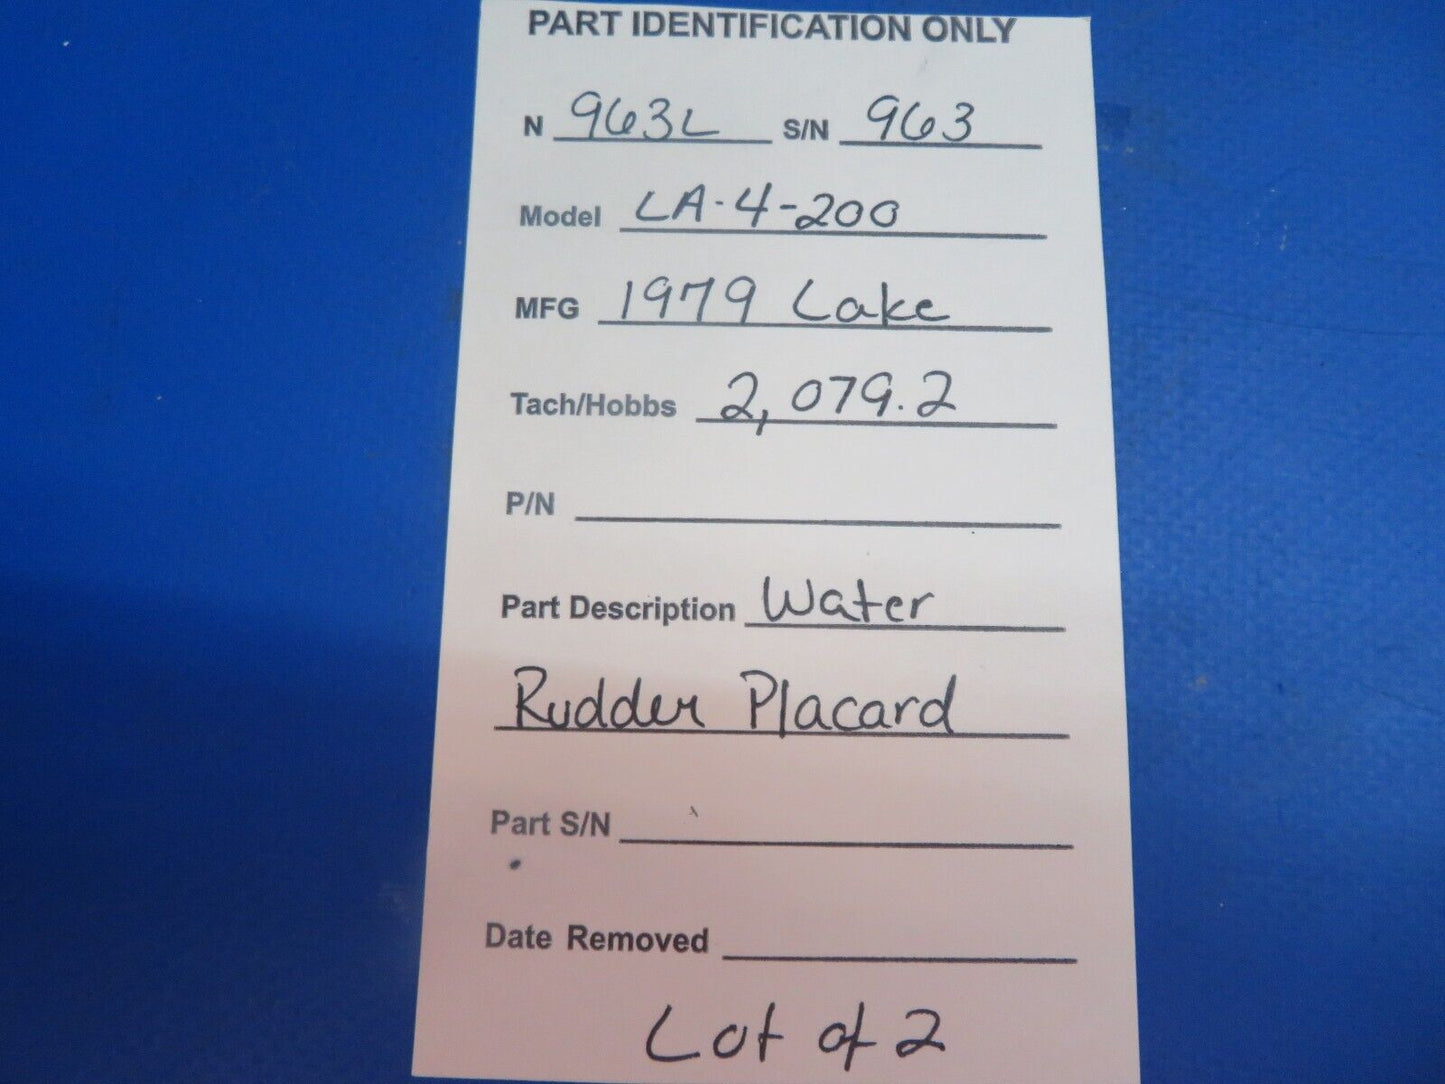 PART IDENTIFICATION ONLY
N 963L S/N 963
Model LA-4-200
MFG 1979 Lake
Tach/Hobbs 2,079.2
P/N
Part Description Water
Rudder Placard
Part S/N
Date Removed
Lot of 2